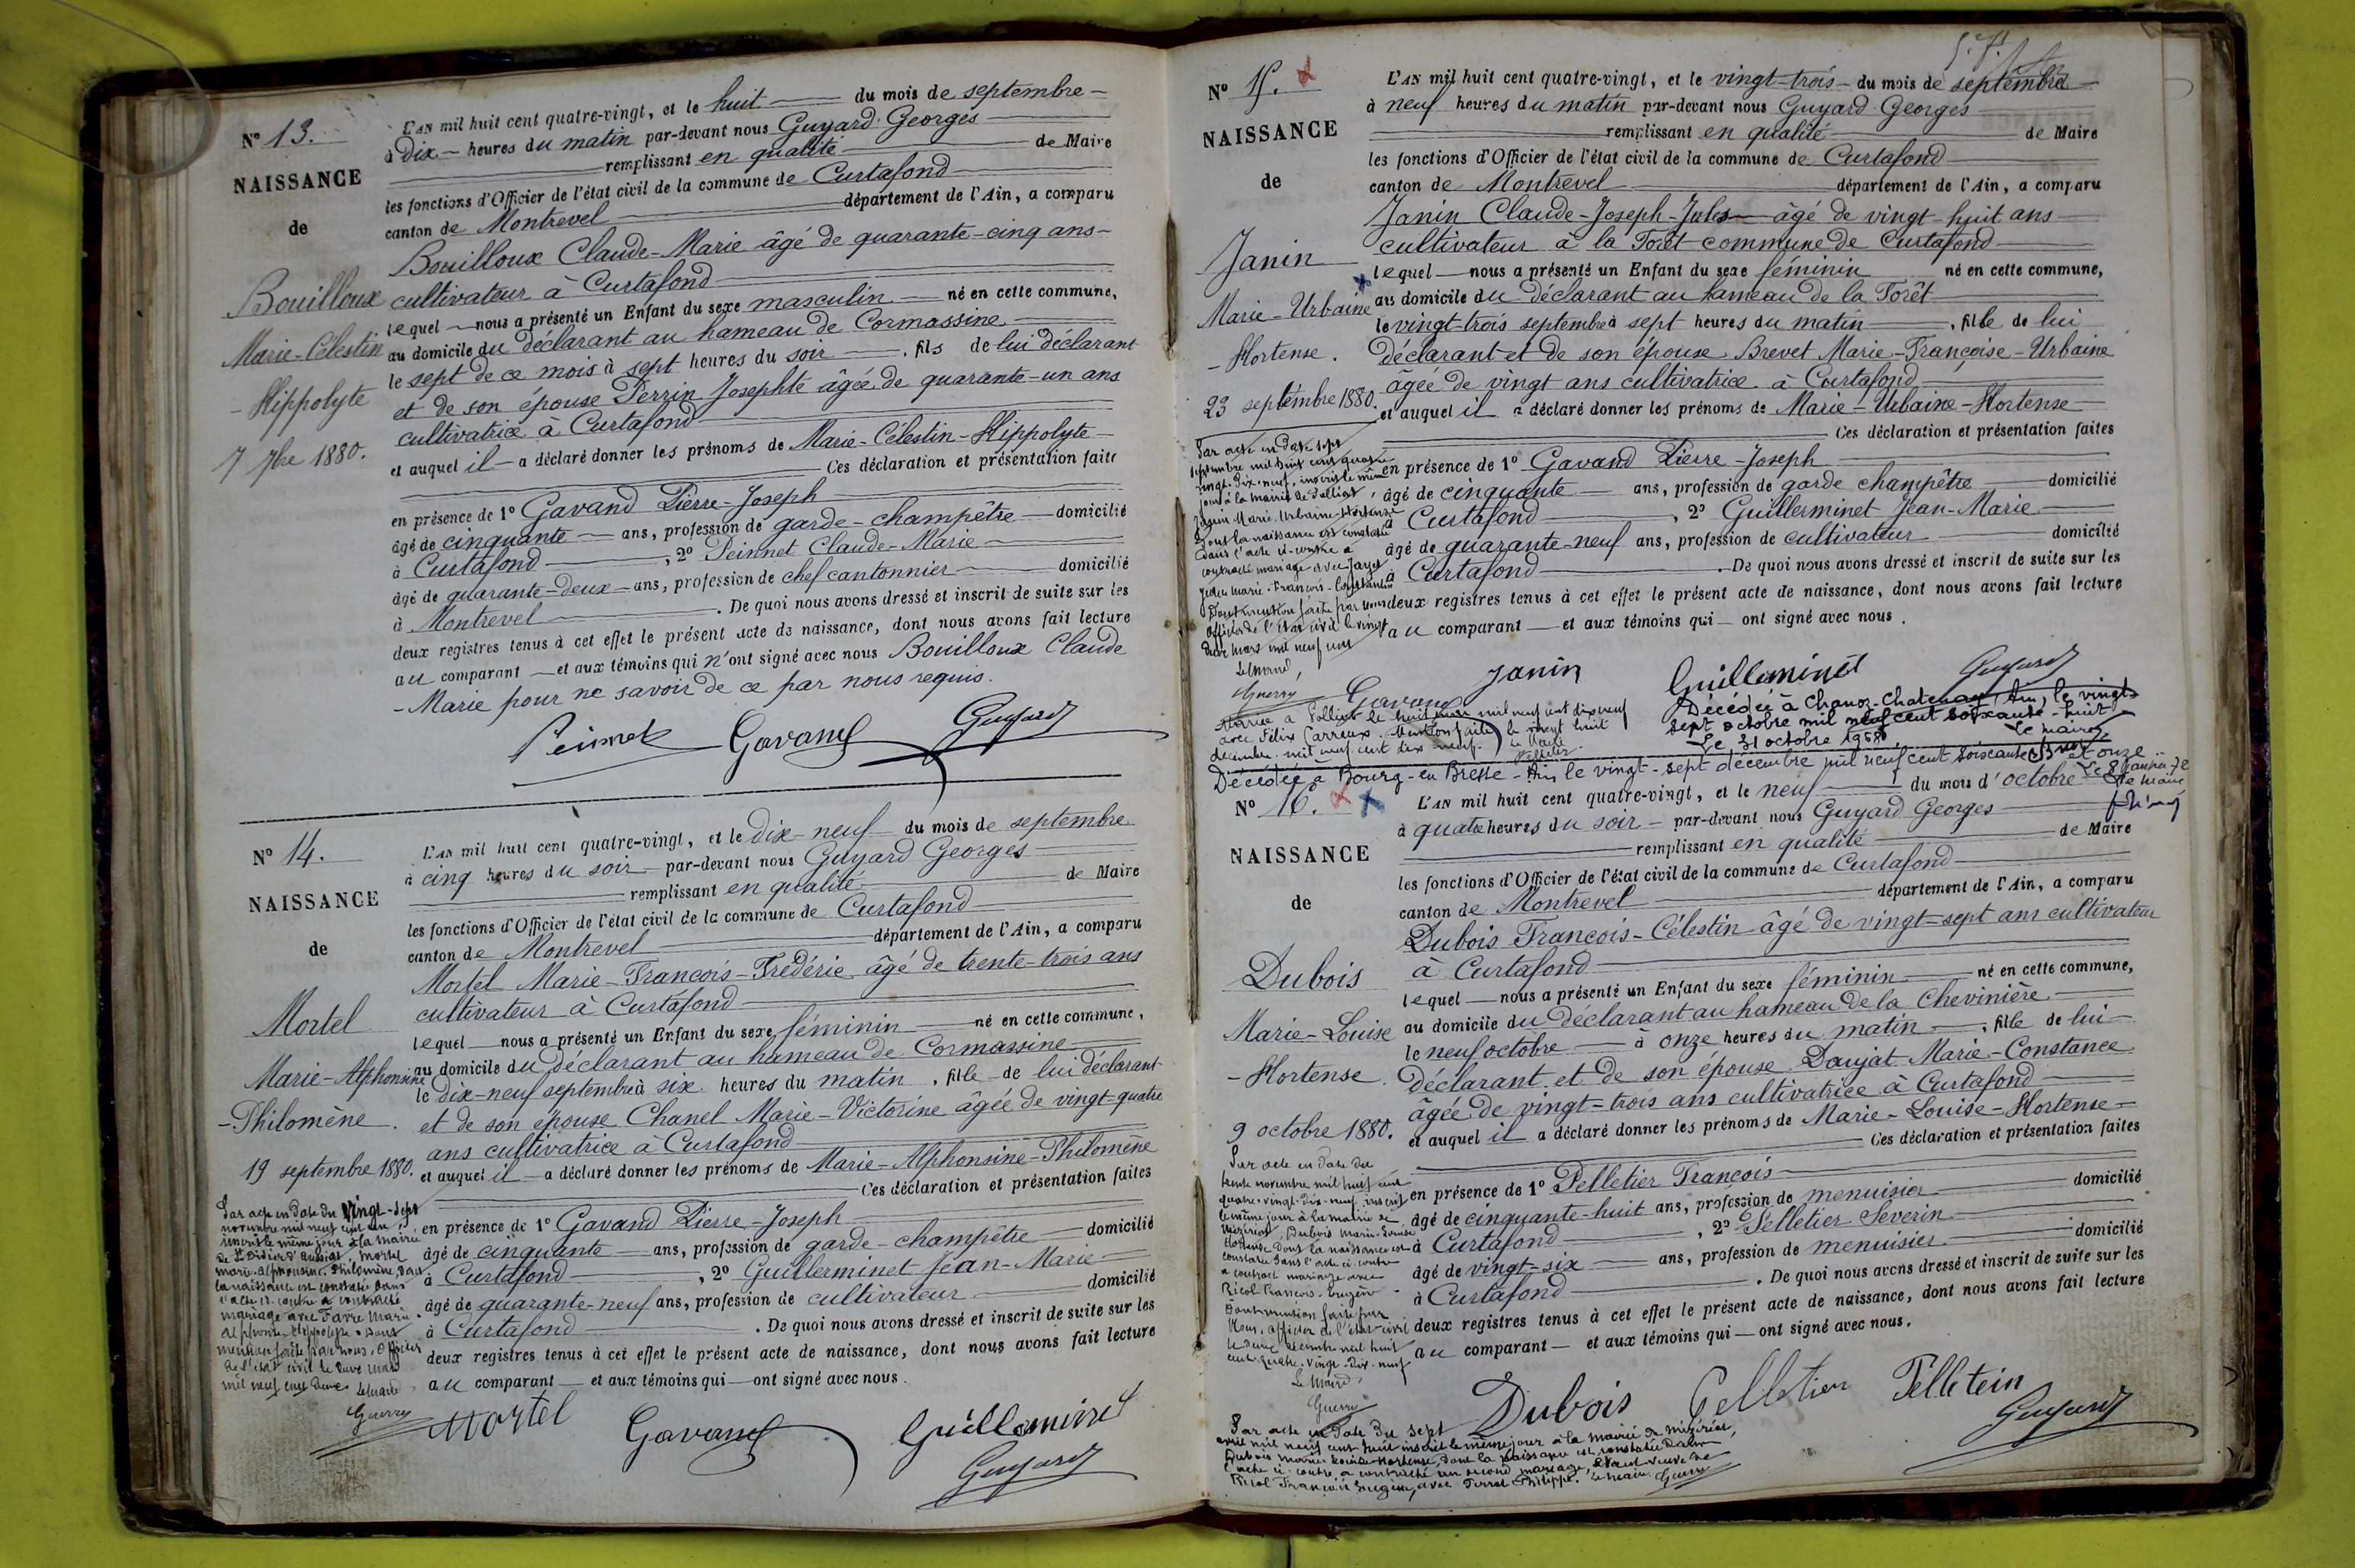 N° 13.
NAISSANCE
de
Bouilloux
Marie-Célestin
-Hippolyte
7 7bre 1880.
L'AN mil huit cent quatre-vingt, et le huit du mois de septembre
à Dix heures du matin par-devant nous Guyard Georges
remplissant en qualité de Maire
les fonctions d'Officier de l'état civil de la commune de Curtafond
canton de Montrevel département de l'Ain, a comparu
Bouilloux Claude-Marie âgé de quarante-cinq ans
cultivateur à Curtafond
lequel nous a présenté un Enfant du sexe masculin né en cette commune,
au domicile du déclarant au hameau de Cormassine
le sept de ce mois à sept heures du soir, fils de lui déclarant
et de son épouse Perrin Josephte âgée de quarante-un ans
cultivatrice à Curtafond
et auquel il a déclaré donner les prénoms de Marie-Célestin-Hippolyte
Ces déclaration et présentation faite
en présence de 1° Gavand Pierre-Joseph
âgé de cinquante ans, profession de garde-champêtre domicilié
à Curtafond, 2° Peinnet Claude-Marie
âgé de quarante-deux ans, profession de chef cantonnier domicilié
à Montrevel. De quoi nous avons dressé et inscrit de suite sur les
deux registres tenus à cet effet le présent acte de naissance, dont nous avons fait lecture
au comparant et aux témoins qui n'ont signé avec nous Bouilloux Claude
-Marie pour ne savoir de ce par nous requis.
Peinnet Gavand Guyard
N° 14.
NAISSANCE
de
Mortel
Marie-Alphonsine
-Philomène.
19 septembre 1880.
Par acte en date du vingt-sept
novembre mil neuf cent un
inscrit le même jour à la mairie
de St Didier d'Aussiat, Mortel
Marie-Alphonsine-Philomène, dont
la naissance est constatée dans
l'acte ci-contre a contracté
mariage avec Favre Marie
Alphonse Hippolyte. Dont
mention faite par nous, officier
de l'état civil le deux mars
mil neuf cent deux. Le maire
Guerry
L'AN mil huit cent quatre-vingt, et le Dix-neuf du mois de septembre
à cinq heures du soir par-devant nous Guyard Georges
remplissant en qualité de Maire
les fonctions d'Officier de l'état civil de la commune de Curtafond
canton de Montrevel département de l'Ain, a comparu
Mortel Marie-François-Frédéric âgé de trente-trois ans
cultivateur à Curtafond
lequel nous a présenté un Enfant du sexe féminin né en cette commune,
au domicile du déclarant au hameau de Cormassine
le dix-neuf septembre à six heures du matin, fille de lui déclarant
et de son épouse Chanel Marie-Victorine âgée de vingt-quatre
ans cultivatrice à Curtafond
et auquel il a déclaré donner les prénoms de Marie-Alphonsine-Philomène
Ces déclaration et présentation faites
en présence de 1° Gavand Pierre-Joseph
âgé de cinquante ans, profession de garde-champêtre domicilié
à Curtafond, 2° Guillerminet Jean-Marie
âgé de quarante-neuf ans, profession de cultivateur domicilié
à Curtafond. De quoi nous avons dressé et inscrit de suite sur les
deux registres tenus à cet effet le présent acte de naissance, dont nous avons fait lecture
au comparant et aux témoins qui ont signé avec nous.
Mortel Gavand Guilleminet
Guyard
N° 15.
NAISSANCE
de
Janin
Marie-Urbaine
-Hortense.
23 septembre 1880.
Par acte en date sept
septembre mil huit cent quatre
vingt-dix-neuf, inscrit le même
jour à la mairie de Polliat,
Janin Marie-Urbaine-Hortense
dont la naissance est constatée
dans l'acte ci-contre a
contracté mariage avec Jayet
Jean Marie-François-Constantin
Dont mention faite par nous
officier de l'état civil le vingt
deux mars mil neuf cent
Le maire,
Guerry
L'AN mil huit cent quatre-vingt, et le vingt-trois du mois de septembre
à neuf heures du matin par-devant nous Guyard Georges
remplissant en qualité de Maire
les fonctions d'Officier de l'état civil de la commune de Curtafond
canton de Montrevel département de l'Ain, a comparu
Janin Claude-Joseph-Jules âgé de vingt-huit ans
cultivateur à la Forêt commune de Curtafond
lequel nous a présenté un Enfant du sexe féminin né en cette commune,
au domicile du déclarant au hameau de la Forêt
le vingt-trois septembre à sept heures du matin, fille de lui
déclarant et de son épouse Brevet Marie-Françoise-Urbaine
âgée de vingt ans cultivatrice à Curtafond
et auquel il a déclaré donner les prénoms de Marie-Urbaine-Hortense
Ces déclaration et présentation faites
en présence de 1° Gavand Pierre-Joseph
âgé de cinquante ans, profession de garde champêtre domicilié
à Curtafond, 2° Guillerminet Jean-Marie
âgé de quarante-neuf ans, profession de cultivateur domicilié
à Curtafond. De quoi nous avons dressé et inscrit de suite sur les
deux registres tenus à cet effet le présent acte de naissance, dont nous avons fait lecture
au comparant et aux témoins qui ont signé avec nous.
Janin Guilleminet Guyard
Gavand
Mariée à Polliat le huit mil neuf cent dix neuf
avec Félix Carreaux. Mention faite le vingt huit
décembre mil neuf cent dix neuf. Le Maire
Décédée à Chanoz-Chatenay, Ain, le vingt-
sept octobre mil neuf cent soixante-huit
Le 31 octobre 1968 Le maire
Décédée à Bourg-en-Bresse - Ain, le vingt-sept décembre mil neuf cent soixante et onze
Le 8 janvier 72
Le Maire
N° 16.
NAISSANCE
de
Dubois
Marie-Louise
-Hortense.
9 octobre 1880.
Par acte en date du
trente novembre mil huit cent
quatre-vingt-dix-neuf inscrit
le même jour à la mairie de
Mézériat, Dubois Marie-Louise
Hortense dont la naissance est
constatée dans l'acte ci-contre
a contracté mariage avec
Ricol François-Eugène
Dont mention faite par
Nous, officier de l'état civil
le deux décembre mil huit
cent quatre-vingt-dix-neuf
Le Maire,
Guerry
L'AN mil huit cent quatre-vingt, et le neuf du mois d'octobre
à quatre heures du soir par-devant nous Guyard Georges
remplissant en qualité de Maire
les fonctions d'Officier de l'état civil de la commune de Curtafond
canton de Montrevel département de l'Ain, a comparu
Dubois François-Célestin âgé de vingt-sept ans cultivateur
à Curtafond
lequel nous a présenté un Enfant du sexe féminin né en cette commune,
au domicile du déclarant au hameau de la Chevinière
le neuf octobre à onze heures du matin, fille de lui
déclarant et de son épouse Daujat Marie-Constance
âgée de vingt-trois ans cultivatrice à Curtafond
et auquel il a déclaré donner les prénoms de Marie-Louise-Hortense
Ces déclaration et présentation faites
en présence de 1° Pelletier François
âgé de cinquante-huit ans, profession de menuisier domicilié
à Curtafond, 2° Pelletier Severin
âgé de vingt-six ans, profession de menuisier domicilié
à Curtafond. De quoi nous avons dressé et inscrit de suite sur les
deux registres tenus à cet effet le présent acte de naissance, dont nous avons fait lecture
au comparant et aux témoins qui ont signé avec nous.
Dubois Pelletier Pelletein
Guyard
Par acte en date du sept
avril mil neuf cent huit inscrit le même jour à la mairie de Mézériat,
Dubois Marie-Louise-Hortense, dont la naissance est constatée dans
l'acte ci-contre, a contracté un second mariage, étant veuve de
Ricol François Eugène, avec Ferrat Philippe. Le maire Guerry